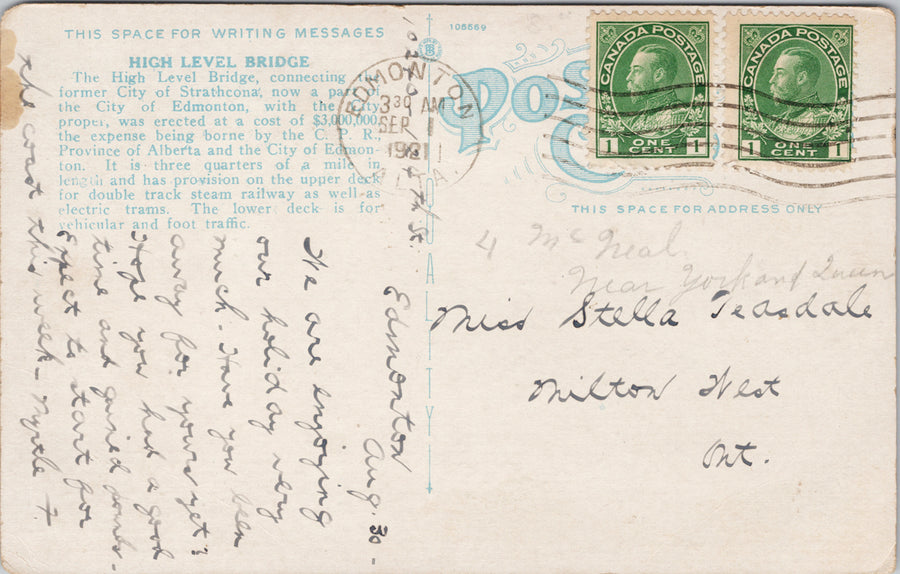 THIS SPACE FOR WRITING MESSAGES
HIGH LEVEL BRIDGE
The High Level Bridge, connecting
former City of Strathcona, now a part of
the City of Edmonton, with the City
proper, was erected at a cost of $3,000,000,
the expense being borne by the C. P. R.,
Province of Alberta and the City of Edmon-
ton. It is three quarters of a mile in
length and has provision on the upper deck
for double track steam railway as well as
electric trams. The lower deck is for
vehicular and foot traffic.
106669
EDMONTON
3 30 AM
SEP 1
1921
CANADA POSTAGE
1 ONE CENT 1
CANADA POSTAGE
1 ONE CENT 1
THIS SPACE FOR ADDRESS ONLY
4 McNeal
Near York and Queen
Miss Stella Teasdale
Milton West
Ont.
St.
Edmonton
Aug. 30 -
We are enjoying
our holiday very
much. Have you been
away for yours yet?
Hope you had a good
time and gained pounds.
Expect to start for
the coast this week - Myrtle F.